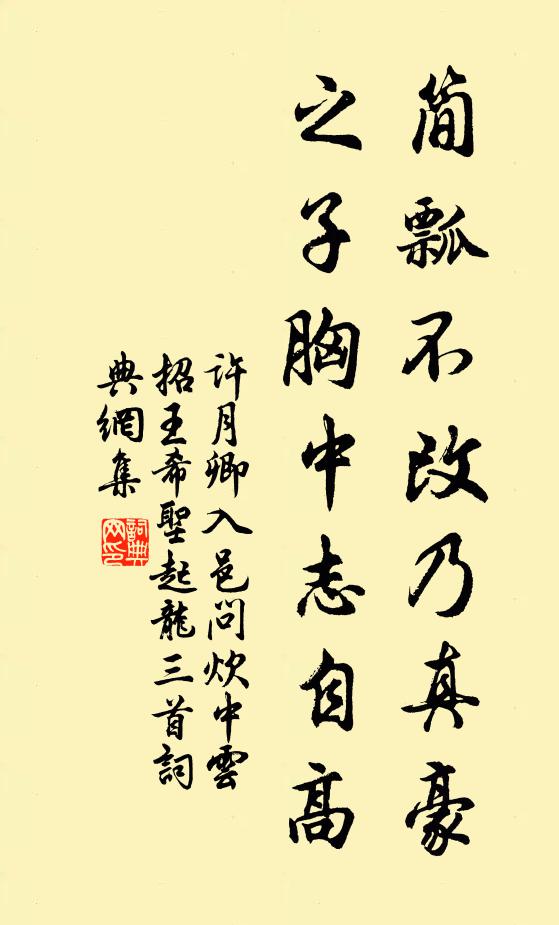 简瓢不改乃真豪
之子胸中志自高
許月卿入邑問炊中雲
招王希聖起龍三首詞
典網集
詞典網印